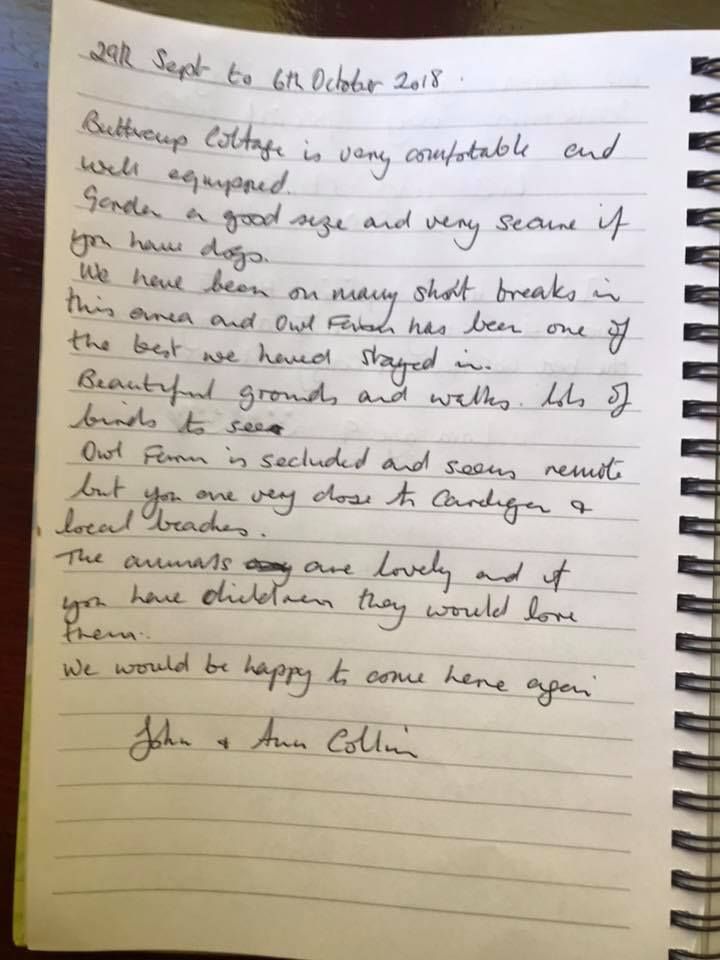 29th Sept to 6th October 2018.
Buttercup Cottage is very comfotable and
well equipped.
Garden a good size and very secure if
you have dogs.
We have been on many short breaks in
this area and Owl Farm has been one of
the best we haved stayed in.
Beautiful grounds and walks. lots of
birds to see
Owl Farm is secluded and seems remote
but you are very close to Cardigan &
local beaches.
The animals are lovely and if
you have children they would love
them.
We would be happy to come here again
John & Ann Collin